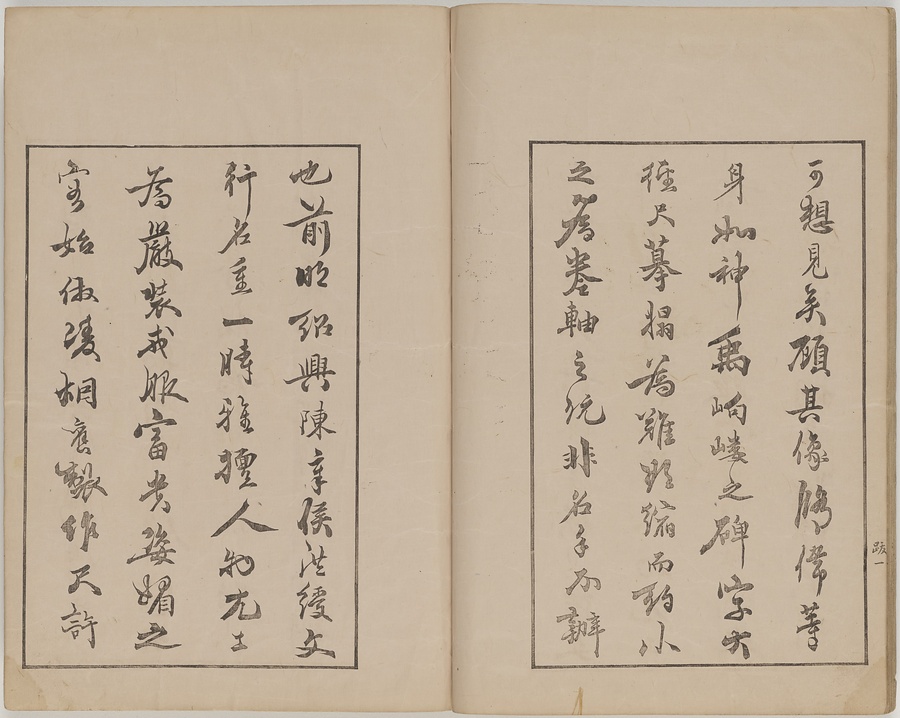 可想見矣顧其像修偉等
身如神禹岣嶁之碑字大
徑尺摹搨為難欲縮而約小
之為卷軸之玩非名手不辦
跋一
也前明紹興陳章侯洪綬文
行名重一時雅擅人物尤工
為嚴裝戎服富貴姿媚之
客始倣凌烟舊製作尺許